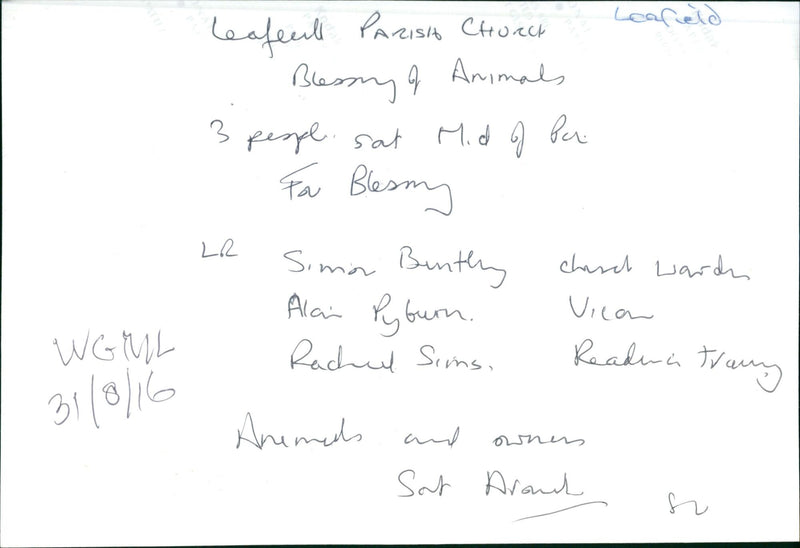 Leafield
Leafield PARISH CHURCH
Blessing of Animals
3 people sat Mid of Pic
For Blessing
LR Simon Bentley church warden
Alan Pyburn. Vicar
Rachael Sims. Reader in training
WGML
31/8/16
Animals and owners
Sat Around